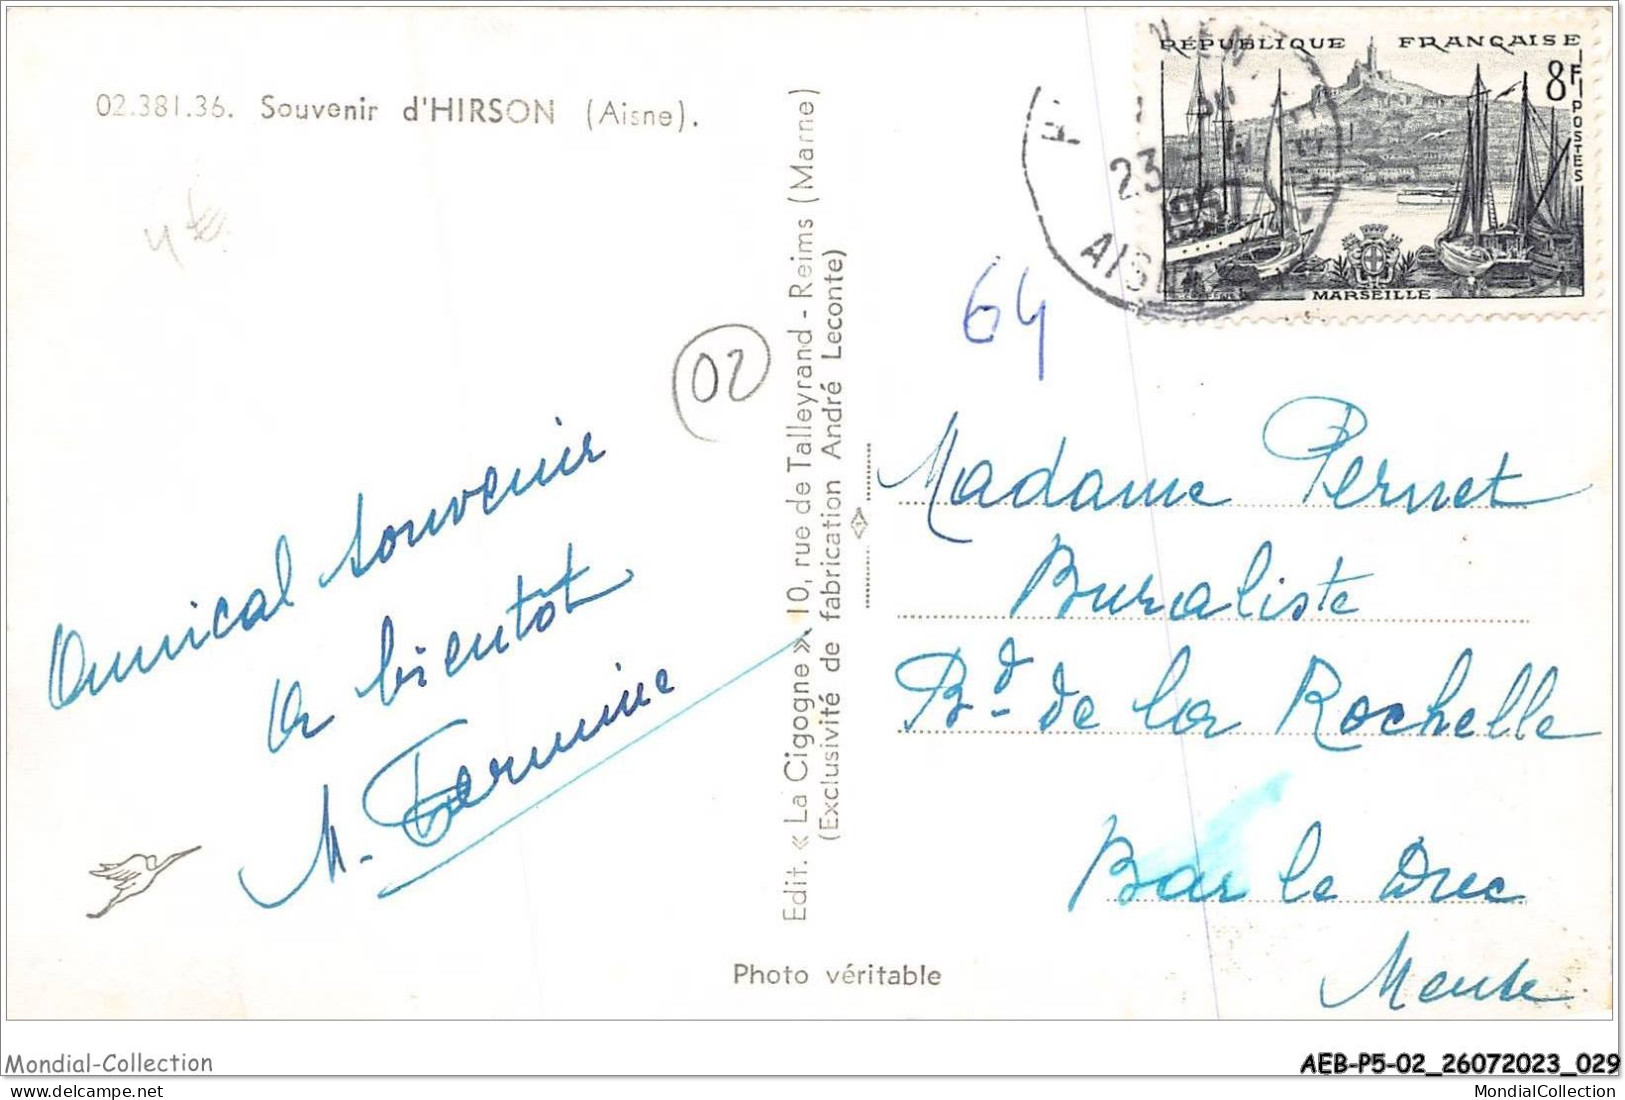 02.381.36. Souvenir d'HIRSON (Aisne).
4€
02
Amical souvenir
a bientôt
M. Fermine
Edit. « La Cigogne » 10, rue de Talleyrand - Reims (Marne)
(Exclusivité de fabrication André Leconte)
Photo véritable
RÉPUBLIQUE FRANÇAISE
8F
POSTES
MARSEILLE
23 - 4
1957
AISNE
64
Madame Pernet
Buraliste
Bd de la Rochelle
Bar le Duc
Meuse
Mondial-Collection
AEB-P5-02_26072023_029
delcampe.net
MondialCollection